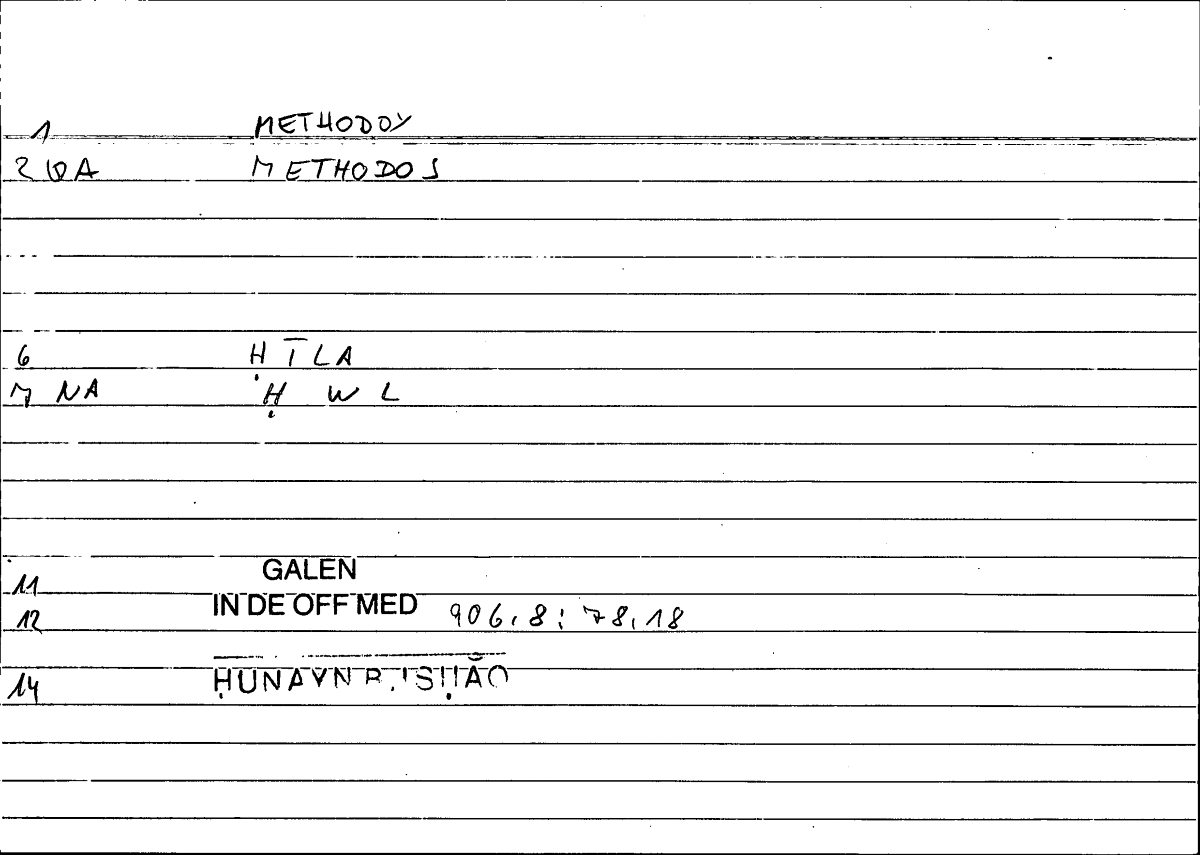 1 METHODOY
2 QA METHODOS
6 ḤĪLA
7 NA Ḥ W L
11 GALEN
12 IN DE OFF MED 906,8 : 78,18
14 ḤUNAYN B. ISḤĀQ